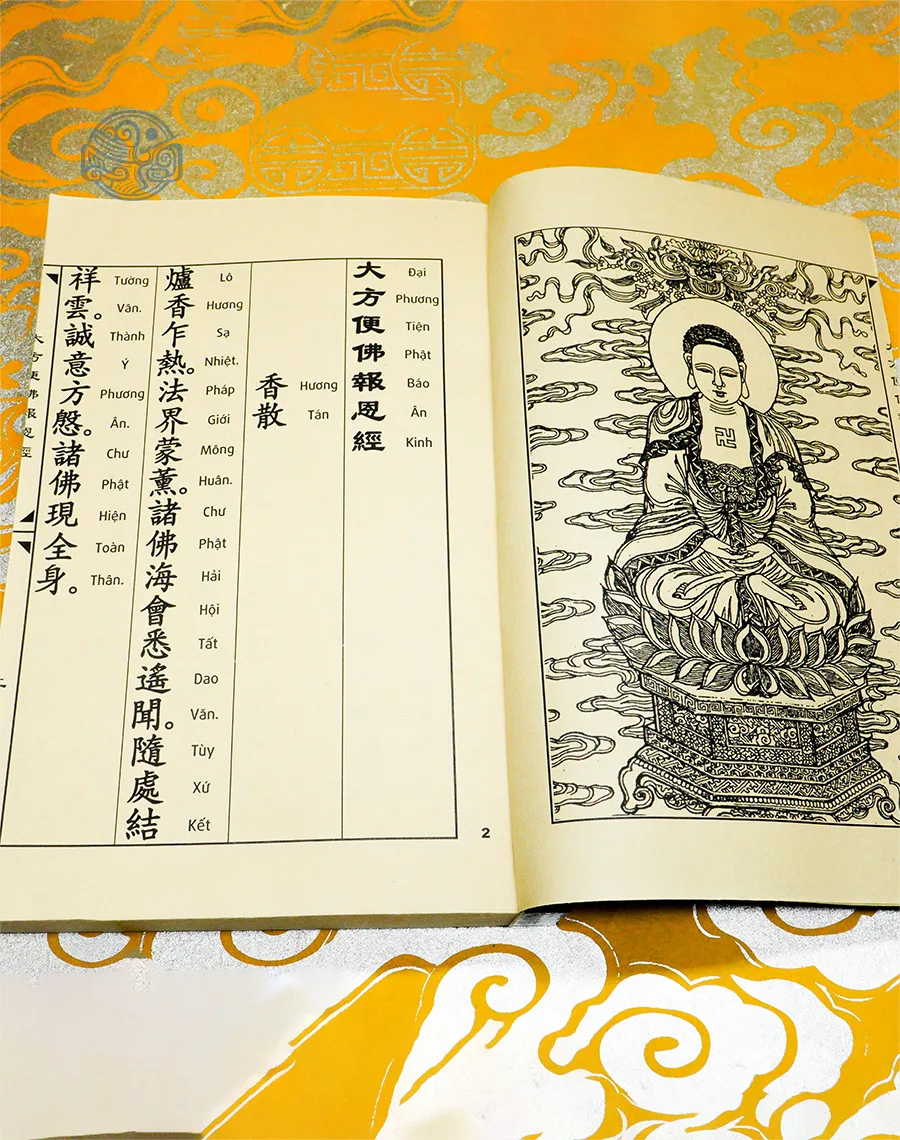 Đại Phương Tiện Phật Báo Ân Kinh
大方便佛報恩經
Hương Tán
香散
Lô Hương Sạ Nhiệt. Pháp Giới Mông Huân. Chư Phật Hải Hội Tất Dao Văn. Tùy Xứ Kết
爐香乍熱。法界蒙薰。諸佛海會悉遙聞。隨處結
Tường Vân. Thành Ý Phương Ân. Chư Phật Hiện Toàn Thân.
祥雲。誠意方慇。諸佛現全身。
大方便佛報恩經
2